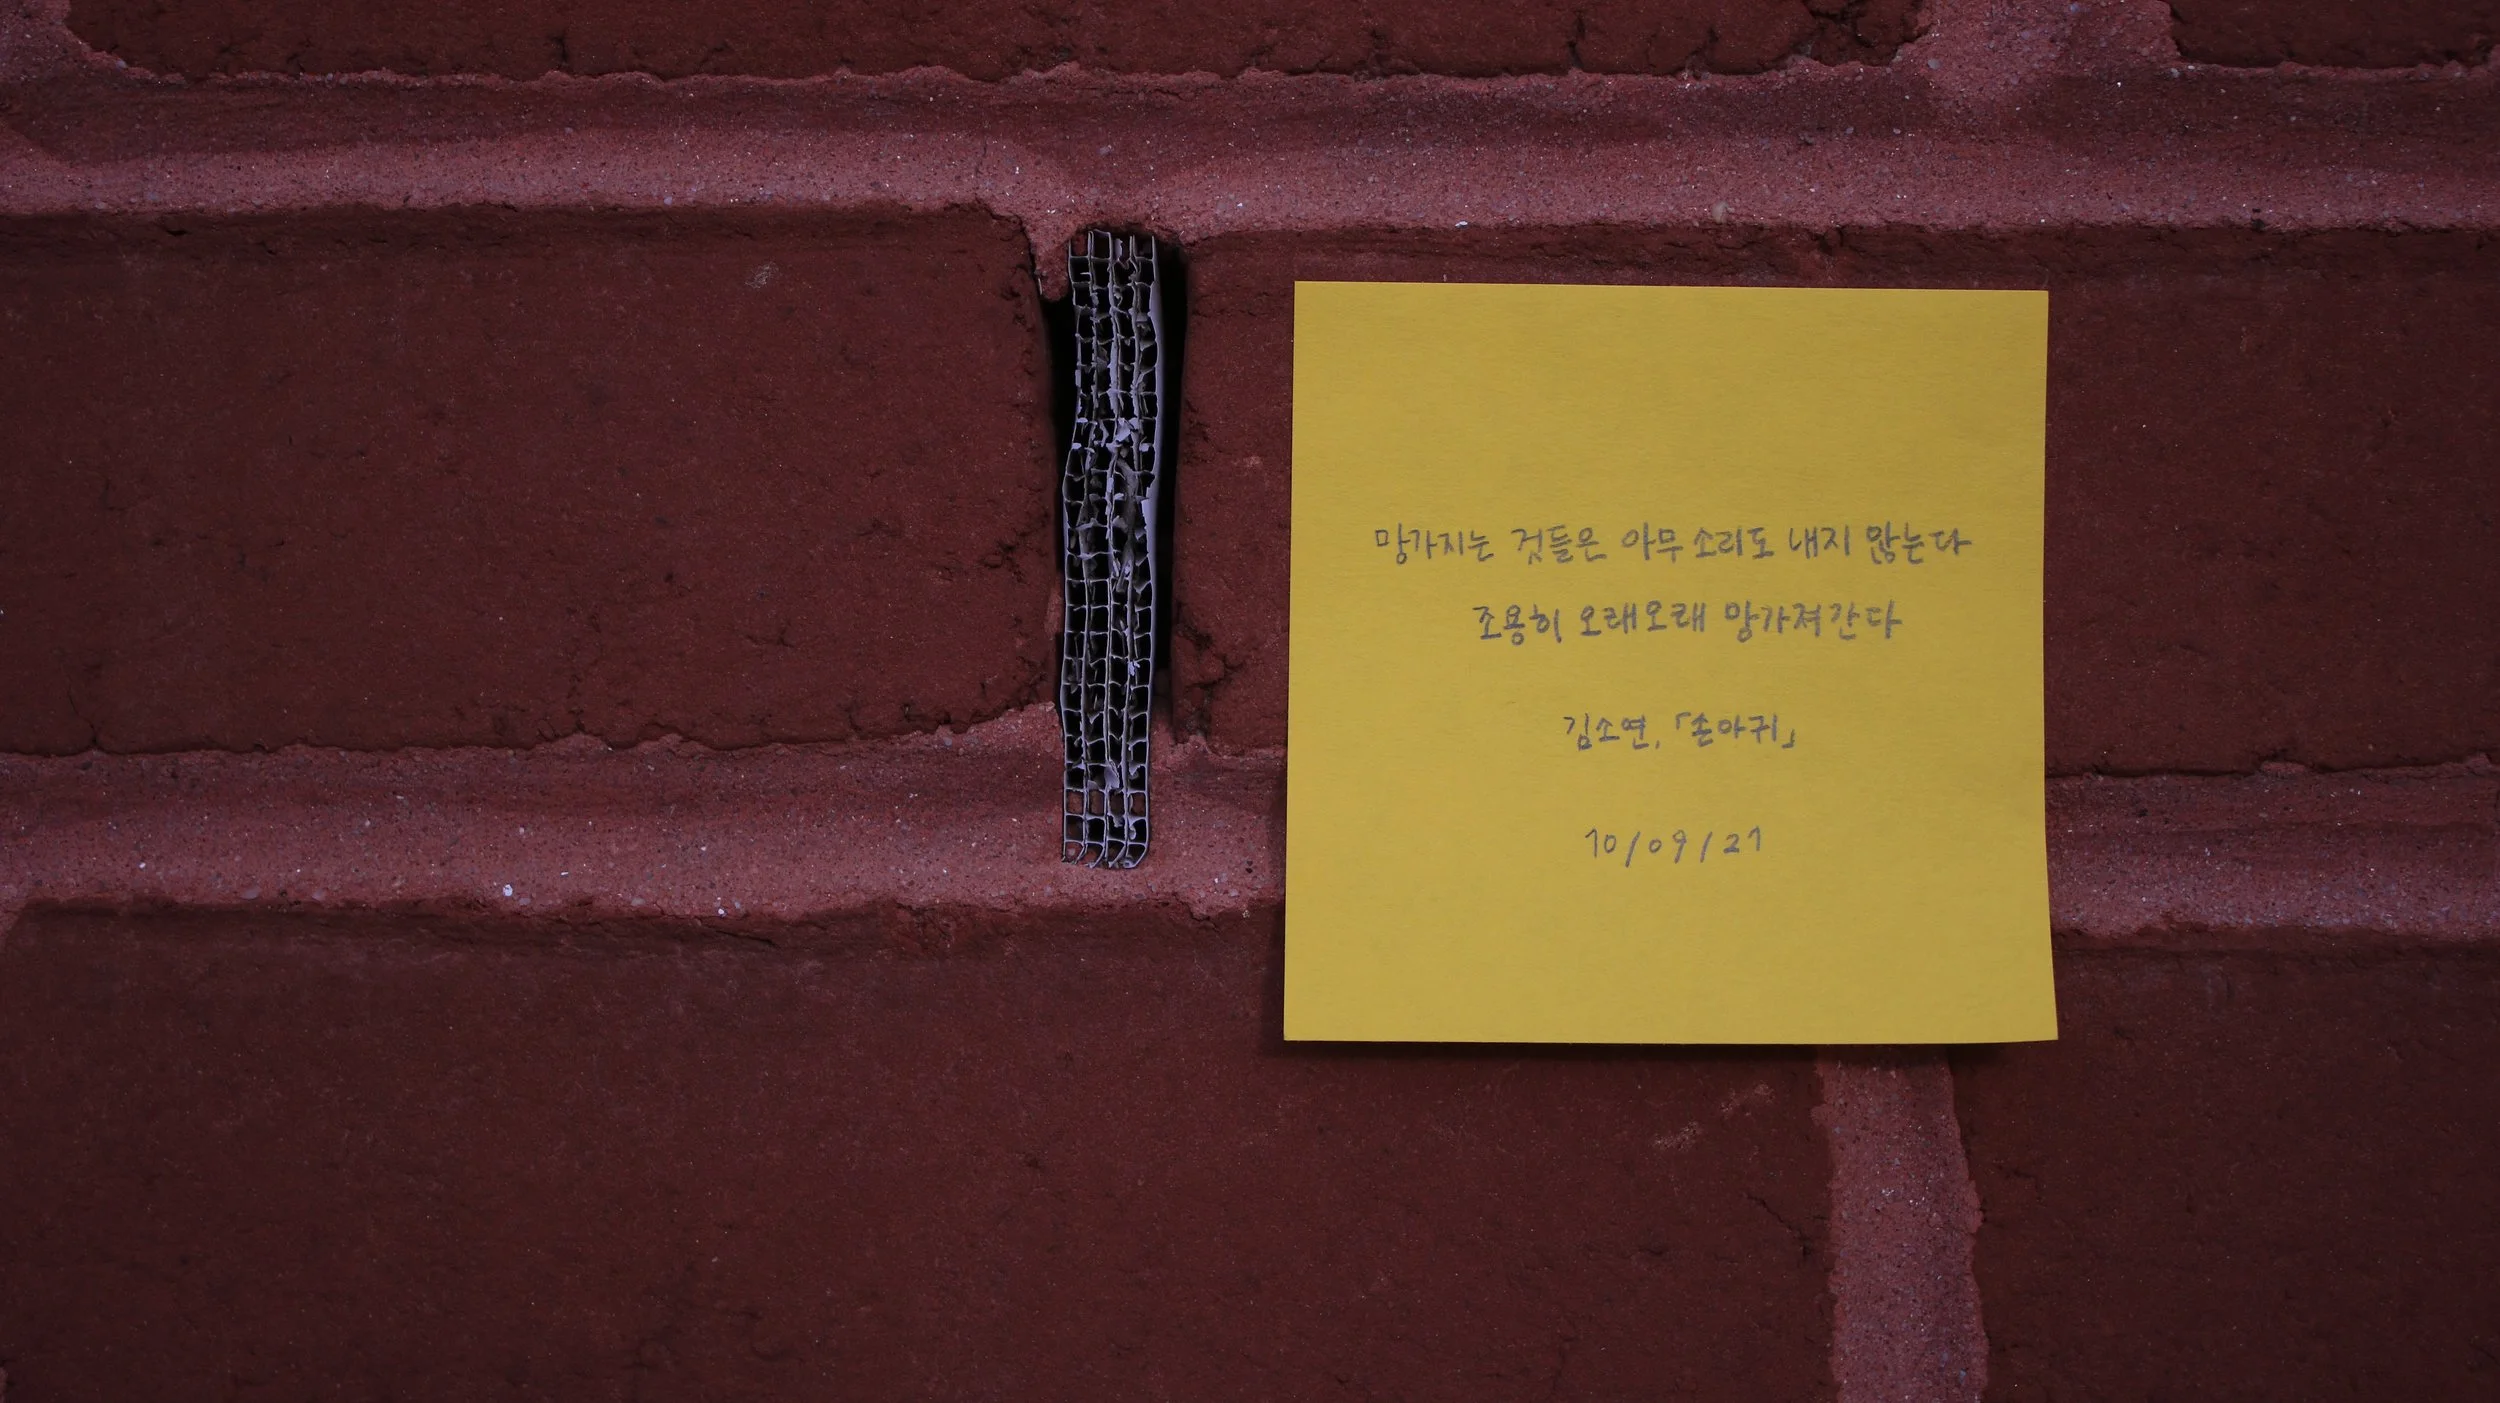 망가지는 것들은 아무 소리도 내지 않는다
조용히 오래오래 망가져간다
김소연, 「손아귀」
10/09/21